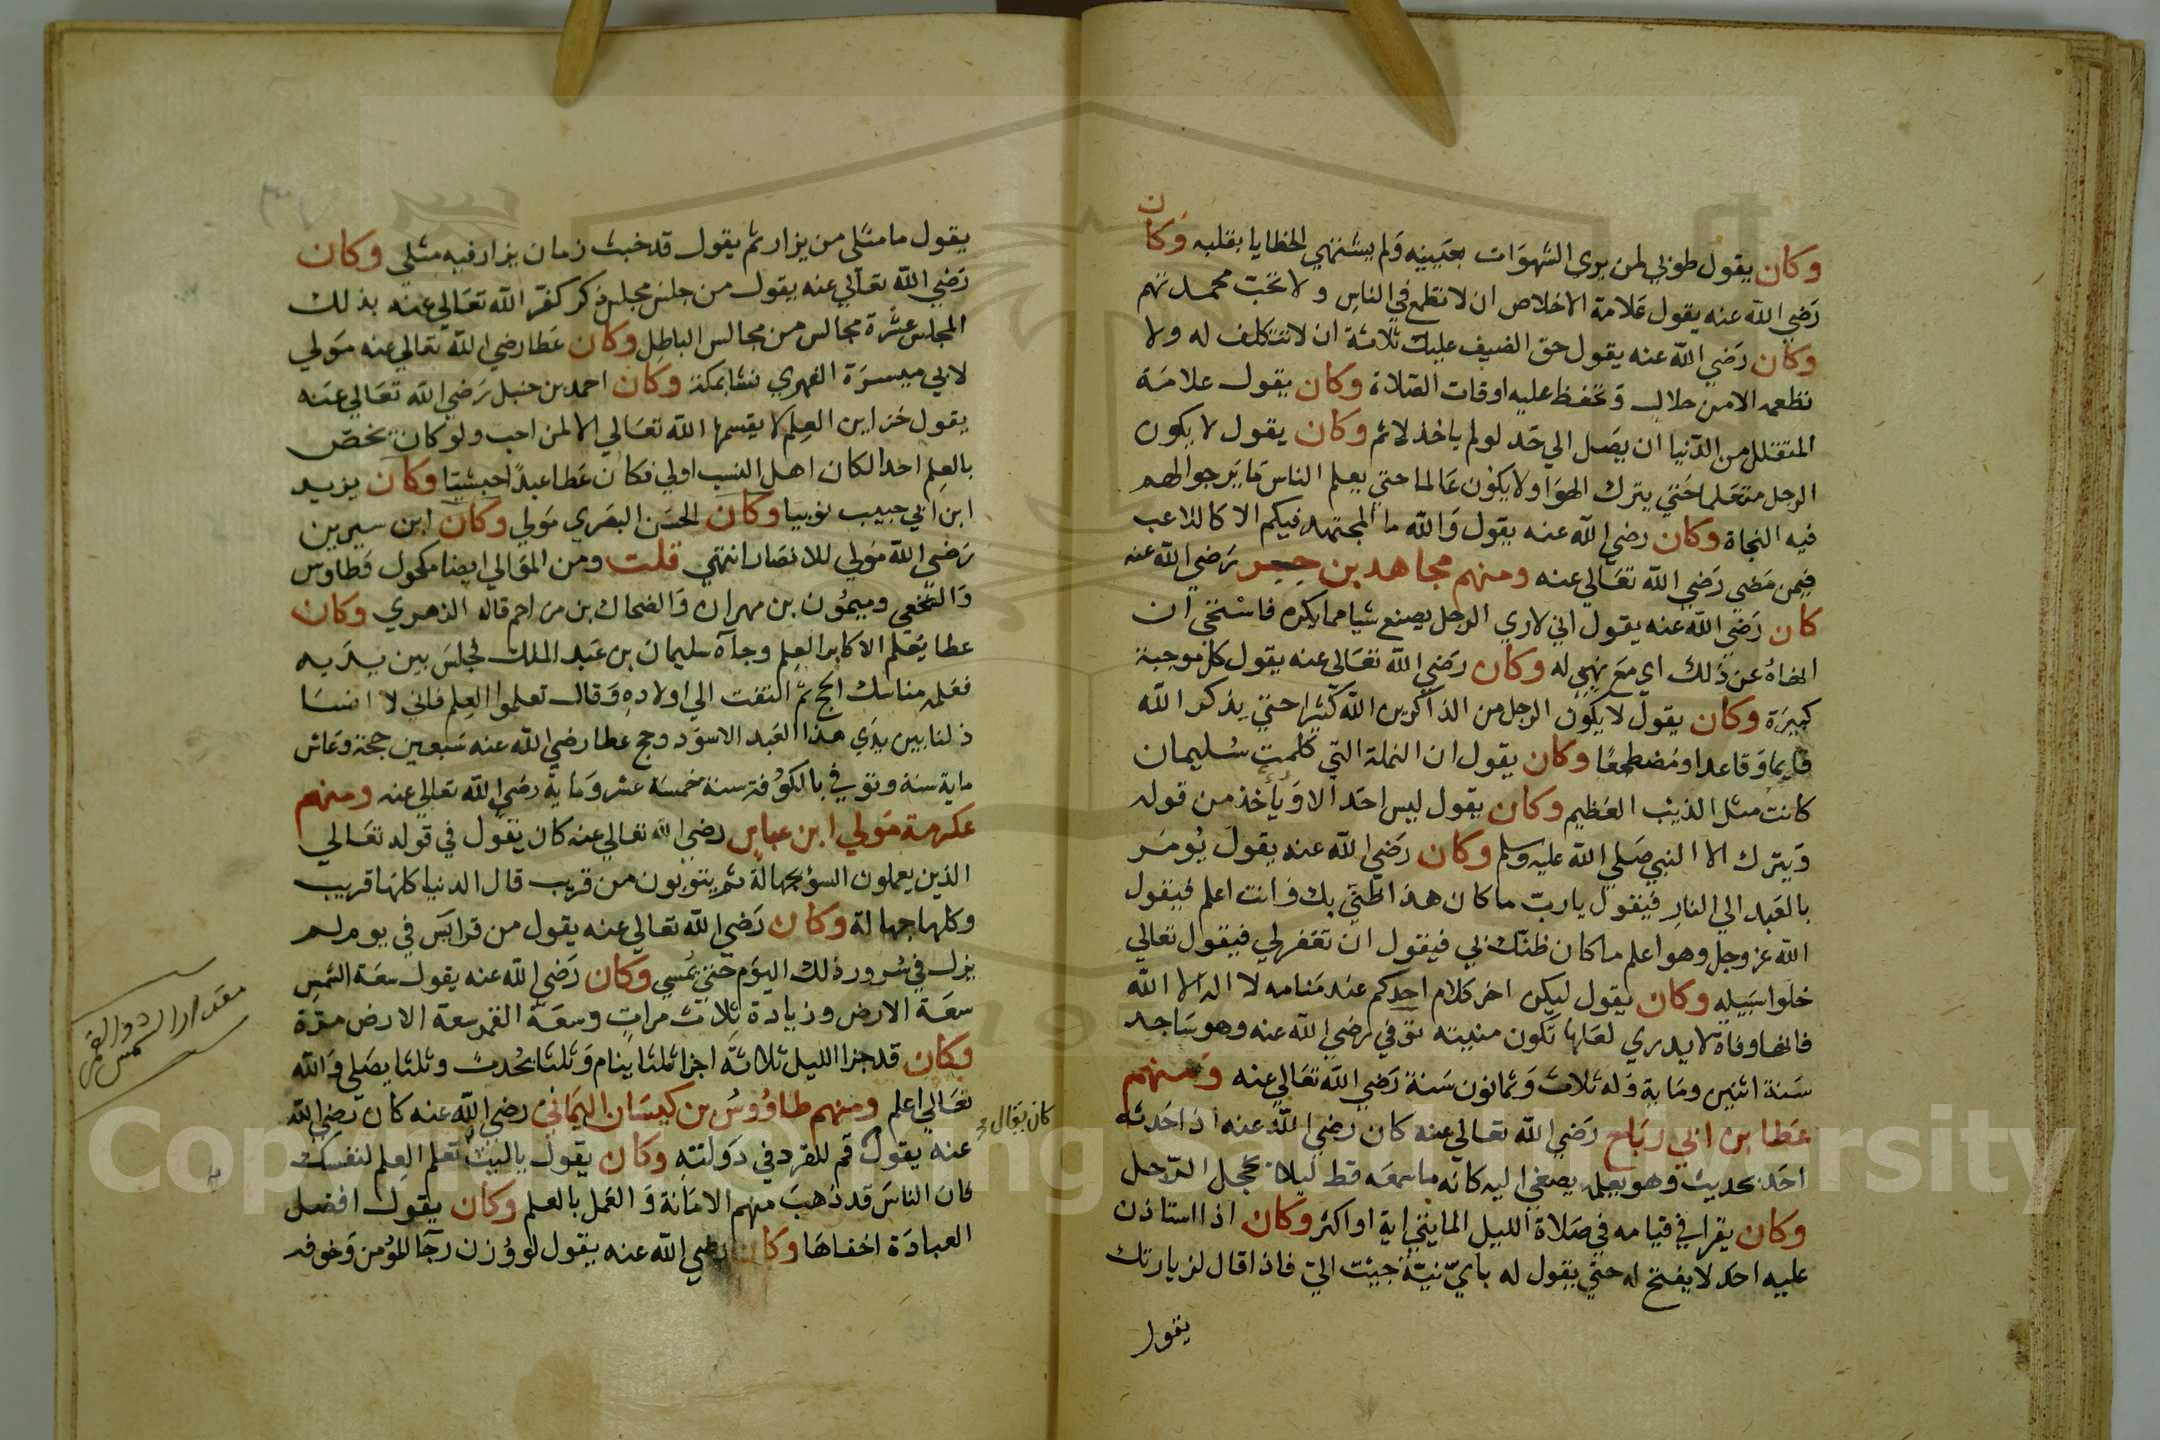 وكان يقول طوبي لمن يري الشهوات بعينيه ولم يشتهي الخطايا بقلبه وكان
رضي الله عنه يقول علامة الاخلاص ان لا تطمع في الناس ولا تحب محمدتهم
وكان رضي الله عنه يقول حق الضيف عليك ثلاثة ان لا تتكلف له ولا
تطعمه الا من حلال وتحفظ عليه اوقات الصلاة وكان يقول علامة
المتقلل من الدنيا ان يصل الي حد لو لم ياخذ لاثم وكان يقول لا يكون
الرجل متعلما حتي يترك الهوا ولا يكون عالما حتي يعلم الناس ما يرجوا لهم
فيه النجاة وكان رضي الله عنه يقول والله ما المجتهد فيكم الا كاللاعب
فيمن مضي رضي الله تعالي عنه ومنهم مجاهد بن جبر رضي الله عنه
كان رضي الله عنه يقول اني لاري الرجل يصنع شيا مما يكره فاستحي ان
انهاه عن ذلك اي مع نهيي له وكان رضي الله تعالي عنه يقول كل موجبة
كبيرة وكان يقول لا يكون الرجل من الذاكرين الله كثيرا حتي يذكر الله
قايما وقاعدا ومضطجعا وكان يقول ان النملة التي كلمت سليمان
كانت مثل الذيب العظيم وكان يقول ليس احد الا ويأخذ من قوله
ويترك الا النبي صلي الله عليه وسلم وكان رضي الله عنه يقول يومر
بالعبد الي النار فيقول يارب ما كان هذا ظني بك وانت اعلم فيقول
الله عز وجل وهو اعلم ما كان ظنك بي فيقول ان تغفر لي فيقول تعالي
خلوا سبيله وكان يقول ليكن اخر كلام احدكم عند منامه لا اله الا الله
فانها وفاة لا يدري لعلها تكون منيته توفي رضي الله عنه وهو ساجد
سنة اثنين وماية وله ثلاث وثمانون سنة رضي الله تعالي عنه ومنهم
عطا بن ابي رباح رضي الله تعالي عنه كان رضي الله عنه اذا حدثه
احد بحديث وهو يعلمه يصغي اليه كانه ما سمعه قط ليلا يخجل الرجل
وكان يقرا في قيامه في صلاة الليل المايتي اية او اكثر وكان اذا استاذن
عليه احد لا يفتح له حتي يقول له باي نية جيت الي فاذا قال لزيارتك
يقول
يقول ما مثلي من يزار ثم يقول قد خبث زمان يزار فيه مثلي وكان
رضي الله تعالي عنه يقول من جلس مجلس ذكر كفر الله تعالي عنه بذلك
المجلس عشرة مجالس من مجالس الباطل وكان عطا رضي الله تعالي عنه مولي
لابي ميسرة الفهري نشا بمكة وكان احمد بن حنبل رضي الله تعالي عنه
يقول خزاين العلم لا يقسمها الله تعالي الا لمن احب ولو كان يخص
بالعلم احدا لكان اهل النسب اولي فكان عطا عبدا حبشيا وكان يزيد
ابن ابي حبيب نوبيا وكان الحسن البصري مولي وكان ابن سيرين
رضي الله مولي للانصار انتهي قلت ومن الموالي ايضا مكحول وطاوس
والنخعي وميمون بن مهران والضحاك بن مزاحم قاله الزهري وكان
عطا يعلم الاكابر العلم وجاه سليمان بن عبد الملك فجلس بين يديه
فعلمه مناسك الحج ثم التفت الي اولاده وقال تعلموا العلم فاني لا انسا
ذلنا بين يدي هذا العبد الاسود وحج عطا رضي الله عنه سبعين حجة وعاش
ماية سنة وتوفي بالكوفة سنة خمسة عشر وماية رضي الله تعالي عنه ومنهم
عكرمة مولي ابن عباس رضي الله تعالي عنه كان يقول في قوله تعالي
الذين يعملون السؤ بجهالة ثم يتوبون من قريب قال الدنيا كلها قريب
وكلها جهالة وكان رضي الله تعالي عنه يقول من قرا يس في يوم لم
يزل في سرور ذلك اليوم حتي يمسي وكان رضي الله عنه يقول سعة الشمس
سعة الارض وزيادة ثلاث مرات وسعة القمر سعة الارض مرة
وكان قد جزا الليل ثلاثة اجزا ثلثا ينام وثلثا يحدث وثلثا يصلي والله
تعالي اعلم ومنهم طاووس بن كيسان اليماني رضي الله عنه كان رضي الله
عنه يقول قم للقرد في دولته وكان يقول ياليت تعلم العلم لنفسك
فان الناس قد ذهب منهم الامانة والعمل بالعلم وكان يقول افضل
العبادة اخفاها وكان رضي الله عنه يقول لو وزن رجا المؤمن وخوفه
مقدار الشمس والقمر
Copyright © King Saud University